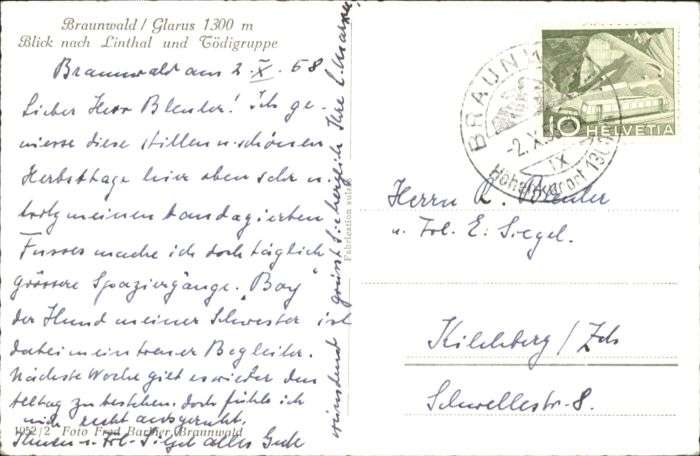 Braunwald / Glarus 1300 m
Blick nach Linthal und Tödigruppe
Braunwald am 2. X. 58
Lieber Herr Bleuler! Ich ge-
niesse diese stillen u. schönen
Herbsttage hier oben sehr u.
trotz meinem bandagierten
Fusses mache ich doch täglich
grössere Spaziergänge. "Boy"
der Hund meiner Schwester ist
dabei mein treuer Begleiter.
Nächste Woche gilt es wieder den
Alltag zu bestehen. doch fühle ich
mich recht ausgeruht.
Ihnen u. Frl. Siegel alles Gute
wünschend grüsst Sie herzlich Ihre
1052/2 Foto Fred Barbier, Braunwald
Fabrication suisse
BRAUNW
2. X. 5
IX
Höhenkurort 1300
10 HELVETIA
Herrn R. Bleuler
u. Frl. E. Siegel.
Kilchberg / Zch
Schwellestr. 8.